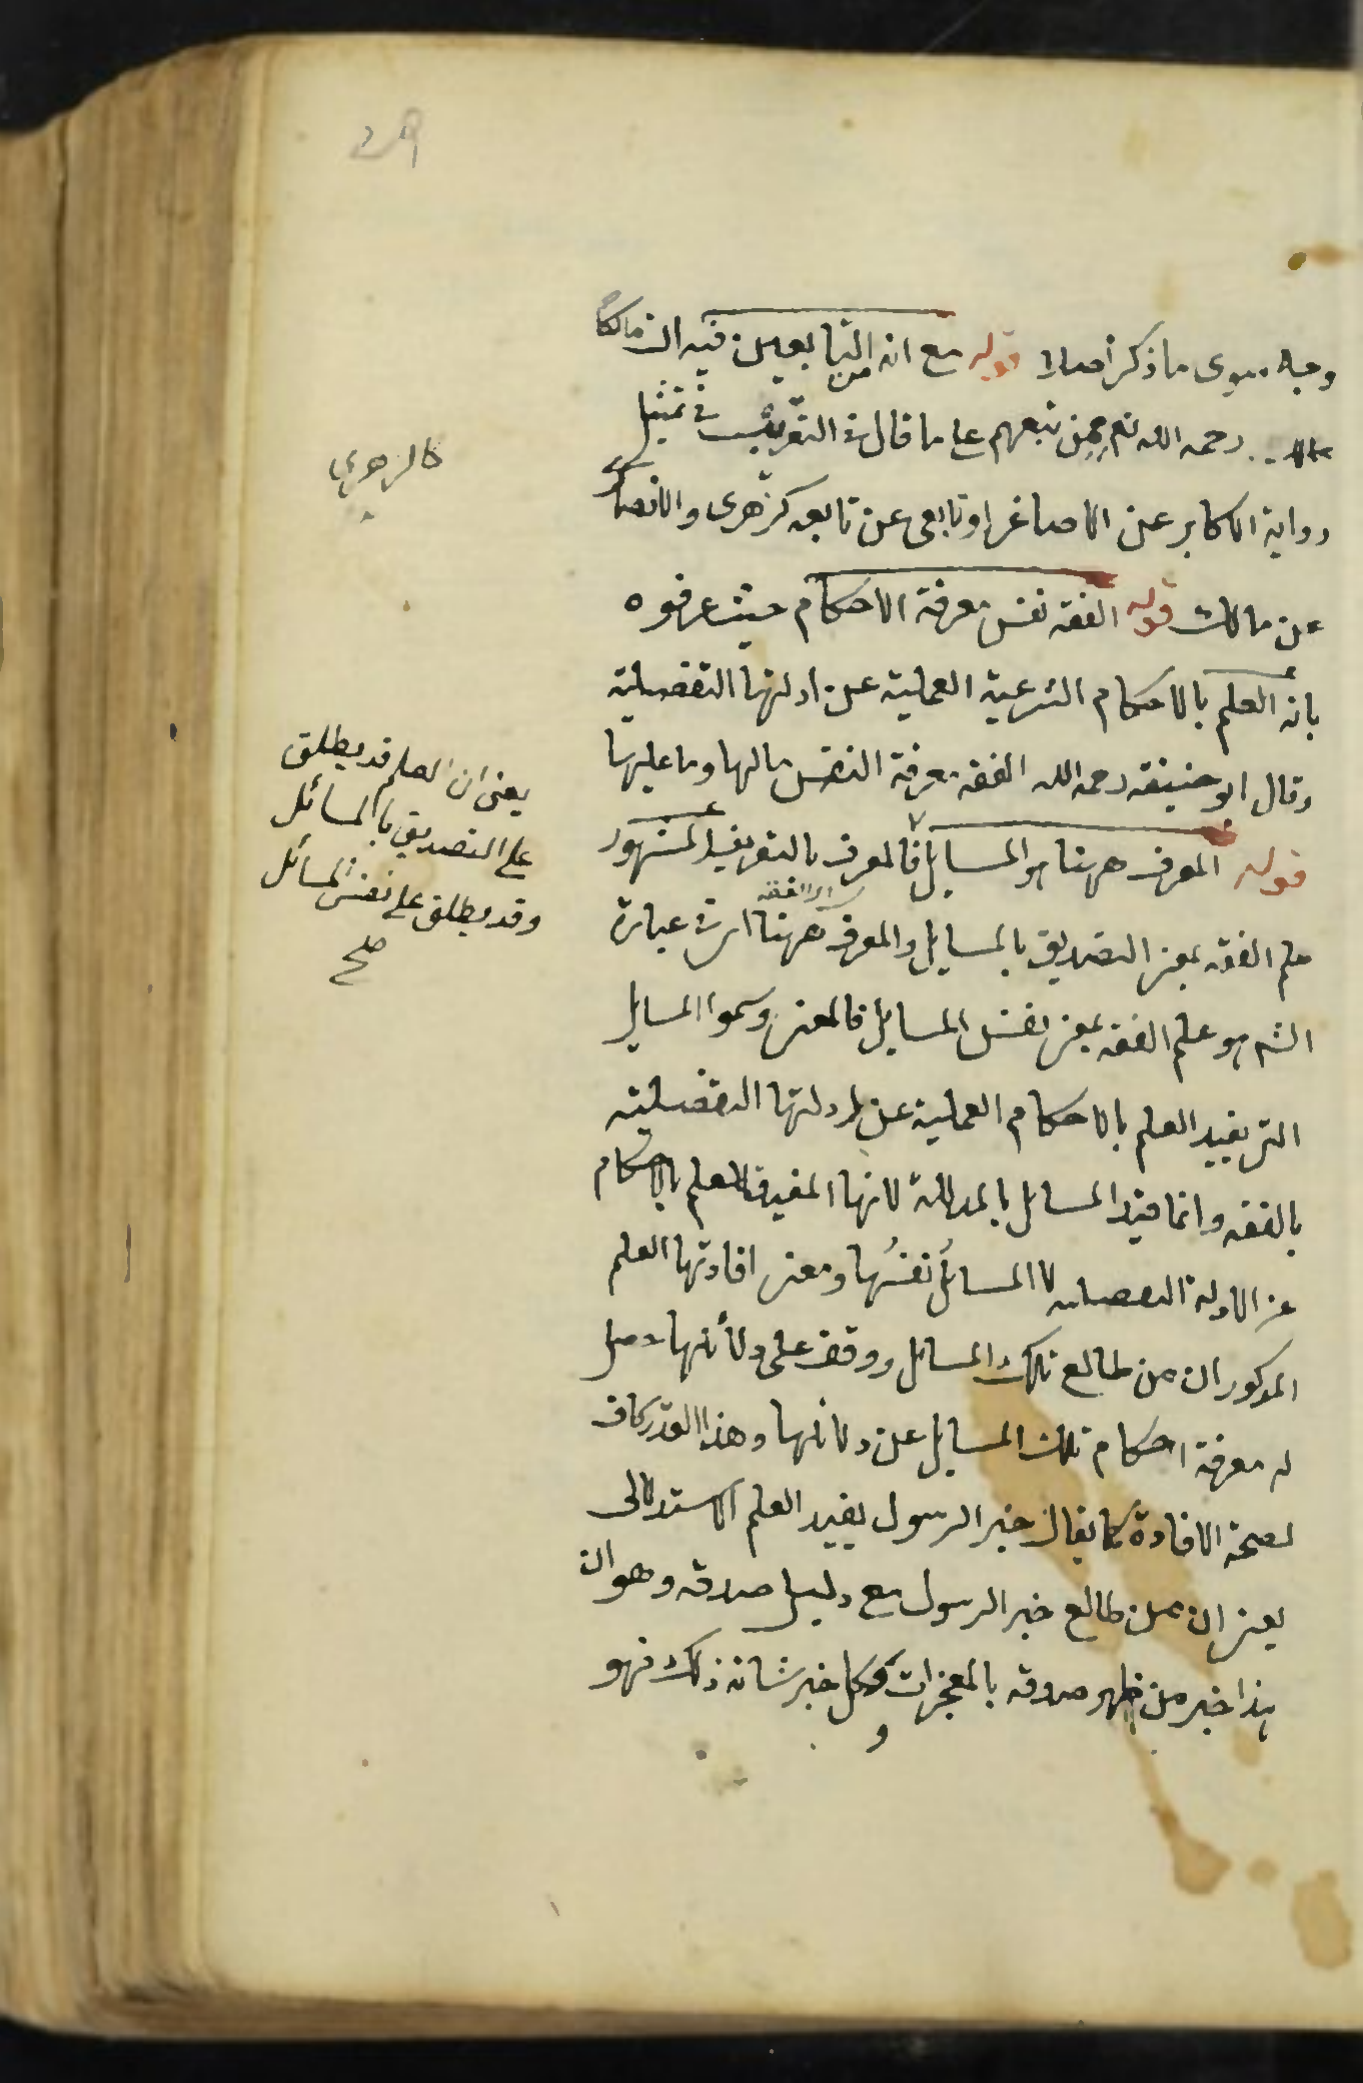 وجه سوى ما ذكر اصلا قوله مع انه من التابعين فيه ان مالكا
رحمه الله تع ممن تبعهم على ما قال في التقريب في تمثيل
رواية الاكابر عن الاصاغر او تابعي عن تابعه كزهرى والانصارى
عن مالك قوله الفقه نفس معرفة الاحكام حيث عرفوه
بانه العلم بالاحكام الشرعية العملية عن ادلتها التفصيلية
وقال ابو حنيفة رحمه الله الفقه معرفة النفس مالها وما عليها
قوله المعرف ههنا هو المسايل فالمعرف بالتعريف المشهور
علم الفقه بمعنى التصديق بالمسايل والمعرف ههنا اى في عبارة
اى الفقه
الشه هو علم الفقه بمعنى نفس المسايل فالمعنى وسموا المسايل
التى يفيد العلم بالاحكام العملية عن ادلتها التفصيلية
بالفقه وانما قيد المسايل بالمدللة لانها المفيدة للعلم بالاحكام
عن الادلة التفصيليه لا المسائل نفسها ومعنى افادتها العلم
المذكور ان من طالع تلك المسائل ووقف على دلائلها حصل
له معرفة احكام تلك المسايل عن دلائلها وهذا القدر كاف
لصحة الافادة كما يقال خبر الرسول يفيد العلم الاستدلالى
يعنى ان من طالع خبر الرسول مع دليل صدقه وهو ان
هذا خبر من ظهر صدقه بالمعجزات وكل خبر شانه ذلك فهو
و
كالزهرى
يعنى ان العلم قد يطلق
على التصديق بالمسائل
وقد يطلق على نفس المسائل
صح